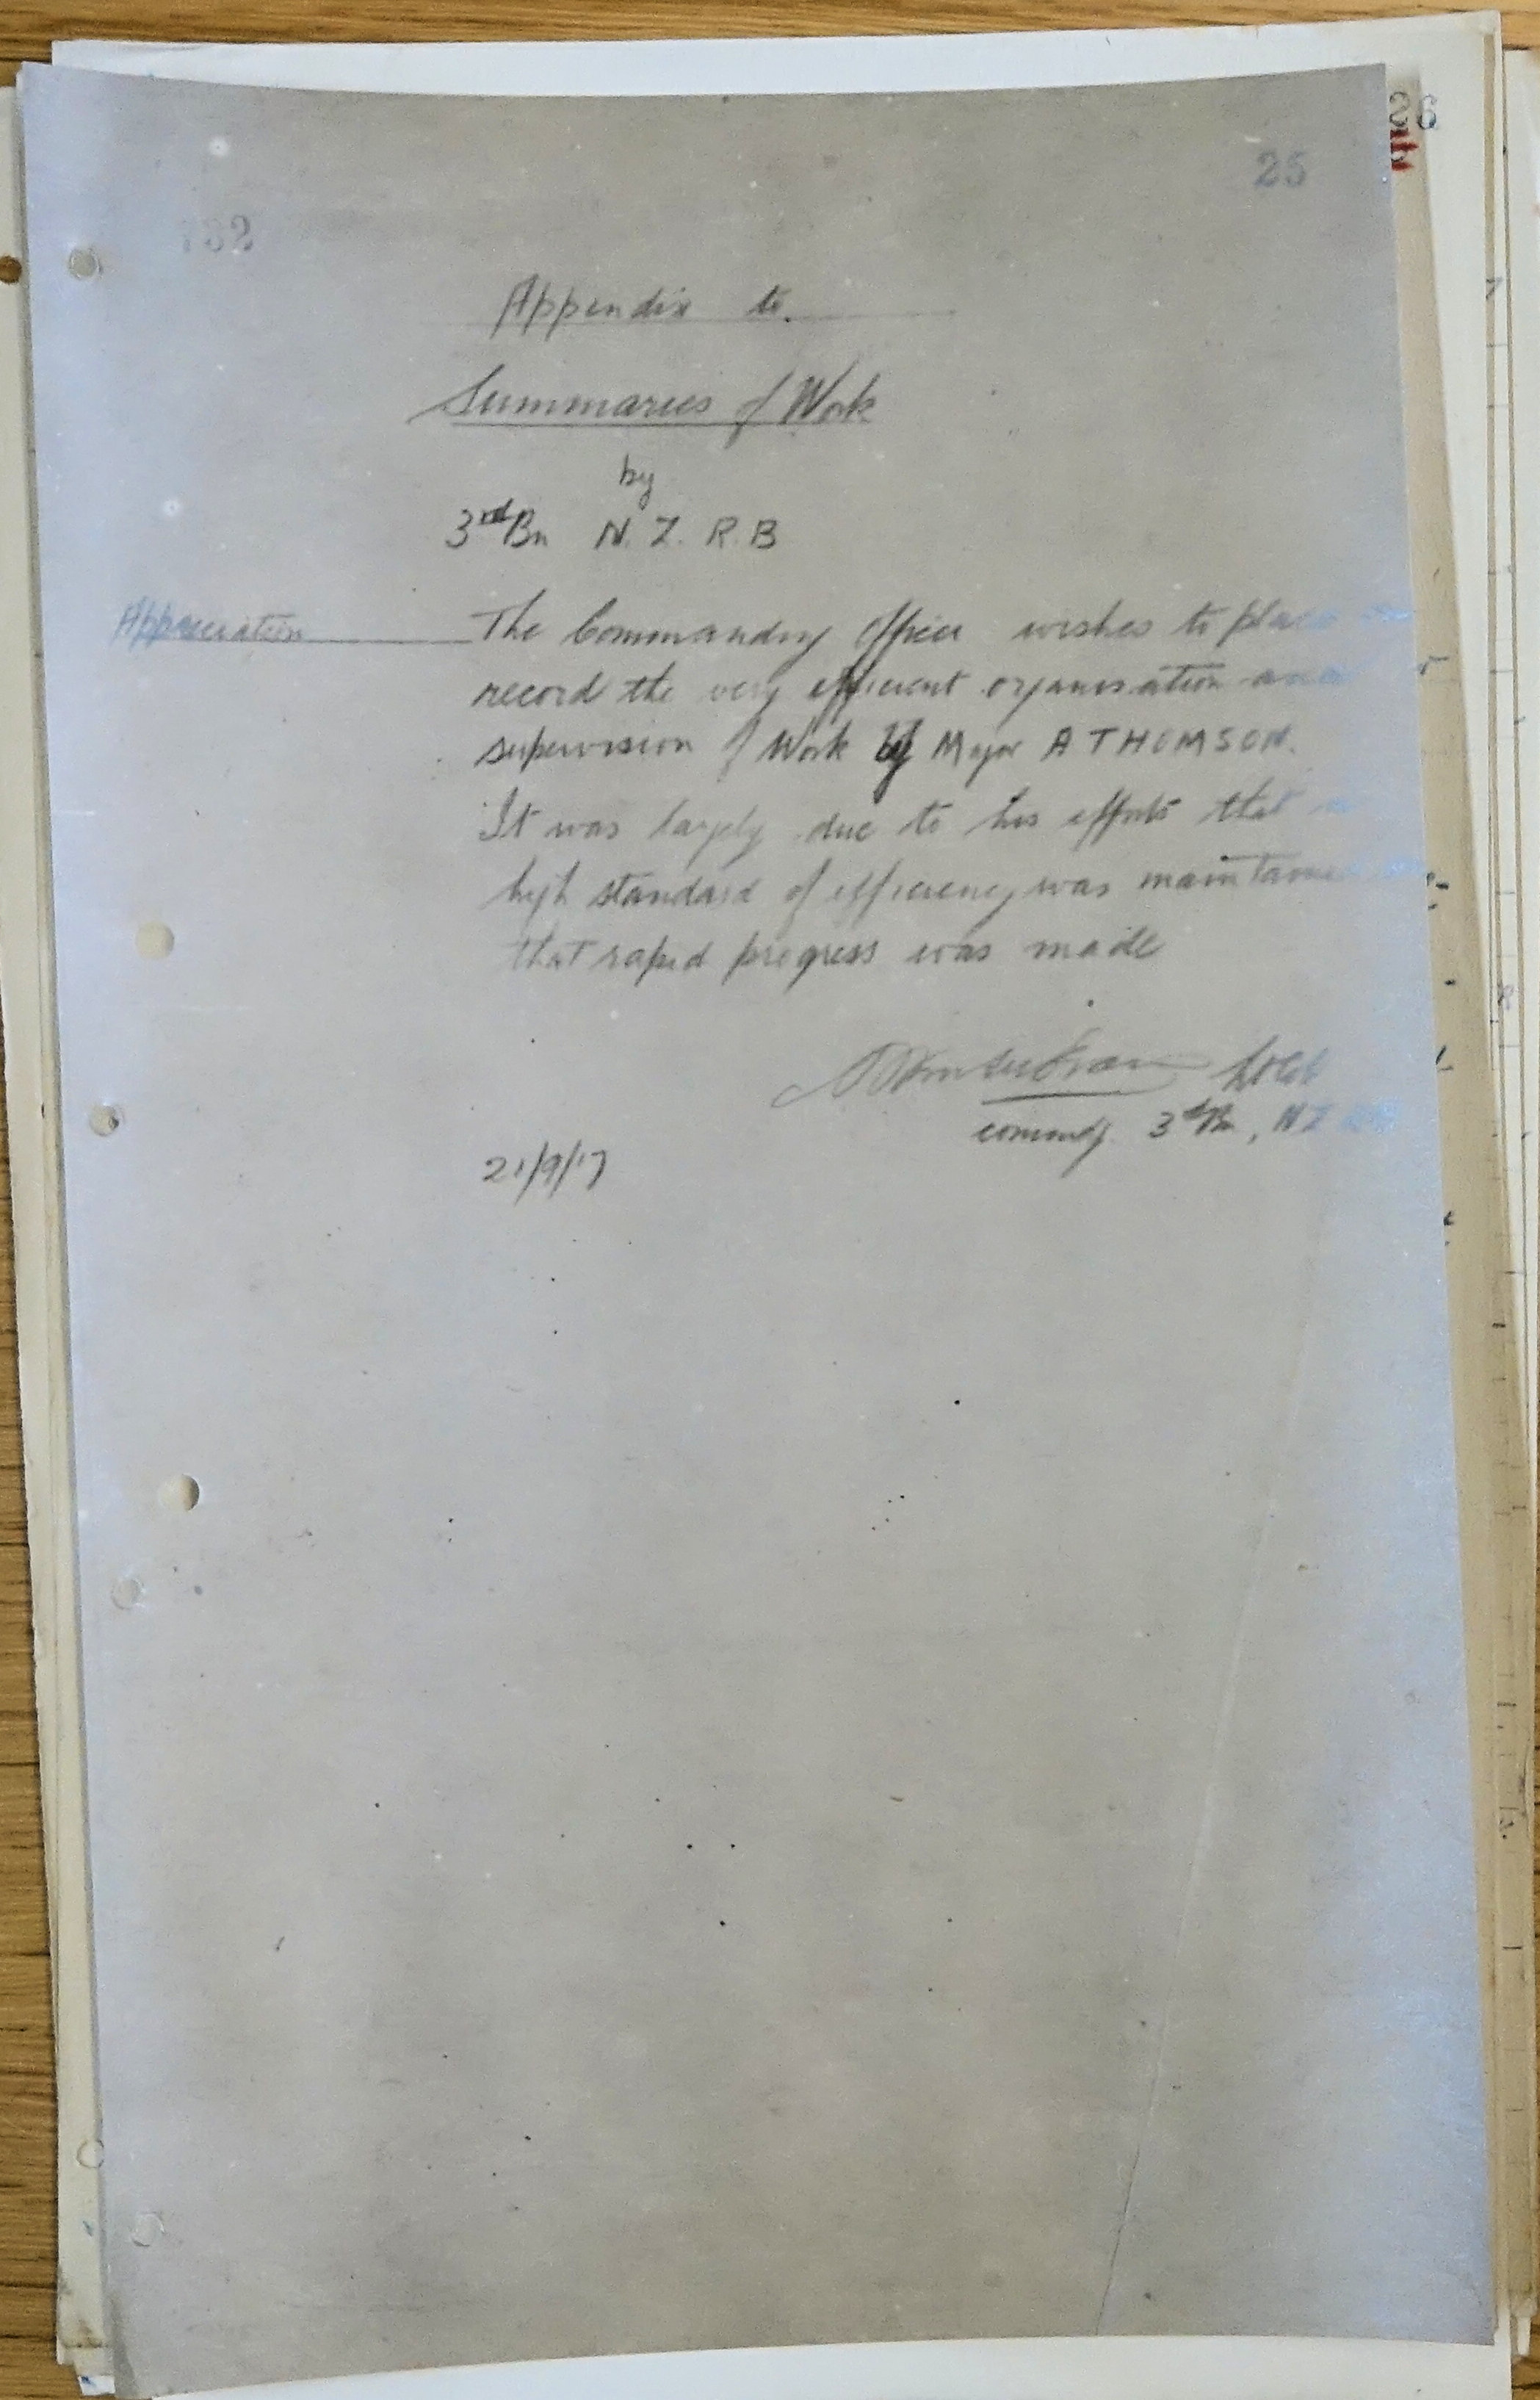 26
25
132
Appendix to.
Summaries of Work
by
3rd Bn N. Z. R. B
Appreciation The Commanding Officer wishes to place on
record the very efficient organisation and
supervision of Work by Major A THOMSON.
It was largely due to his efforts that a
high standard of efficiency was maintained
that rapid progress was made
Lt Col
commdg. 3rd Bn, N Z
21/9/17